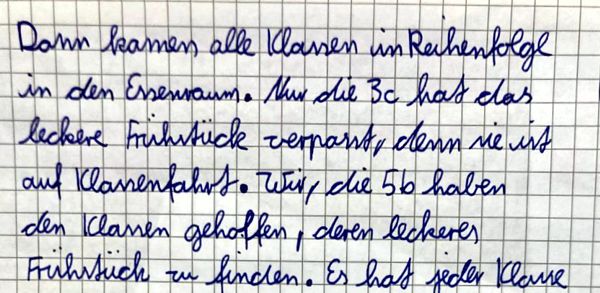 Dann kamen alle Klassen in Reihenfolge
in den Essenraum. Nur die 3c hat das
leckere Frühstück verpasst, denn sie ist
auf Klassenfahrt. Wir, die 5b haben
den Klassen geholfen, deren leckeres
Frühstück zu finden. Es hat jeder Klasse